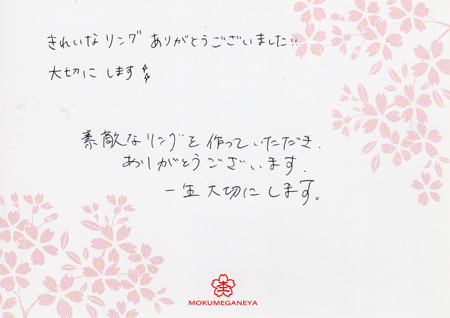 きれいなリング ありがとうございました!!
大切に します
素敵なリングを作っていただき、
ありがとうございます.
一生大切にします。
杢
MOKUMEGANEYA